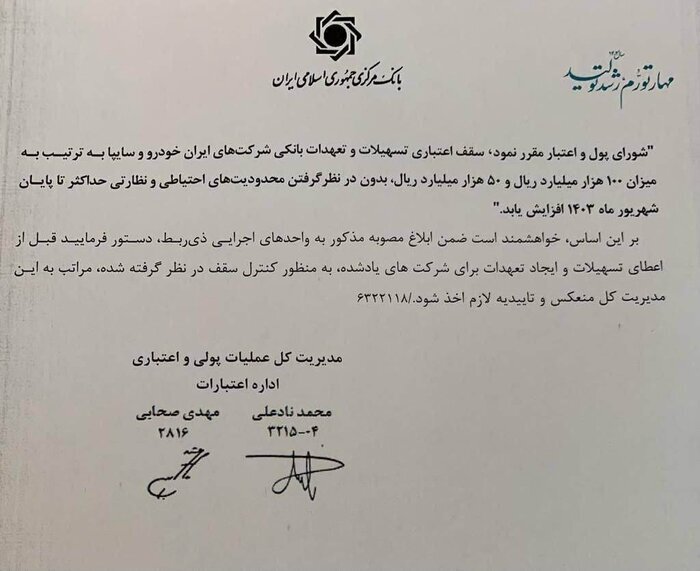 بانک مرکزی جمهوری اسلامی ایران
مهار تورم رشد تولید
"شورای پول و اعتبار مقرر نمود، سقف اعتباری تسهیلات و تعهدات بانکی شرکت‌های ایران خودرو و سایپا به ترتیب به
میزان ۱۰۰ هزار میلیارد ریال و ۵۰ هزار میلیارد ریال، بدون در نظر گرفتن محدودیت‌های احتیاطی و نظارتی حداکثر تا پایان
شهریور ماه ۱۴۰۳ افزایش یابد."
بر این اساس، خواهشمند است ضمن ابلاغ مصوبه مذکور به واحدهای اجرایی ذی‌ربط، دستور فرمایید قبل از
اعطای تسهیلات و ایجاد تعهدات برای شرکت های یادشده، به منظور کنترل سقف در نظر گرفته شده، مراتب به این
مدیریت کل منعکس و تاییدیه لازم اخذ شود./۶۳۲۲۱۱۸
مدیریت کل عملیات پولی و اعتباری
اداره اعتبارات
محمد نادعلی مهدی صحابی
۳۲۱۵-۰۴ ۲۸۱۶